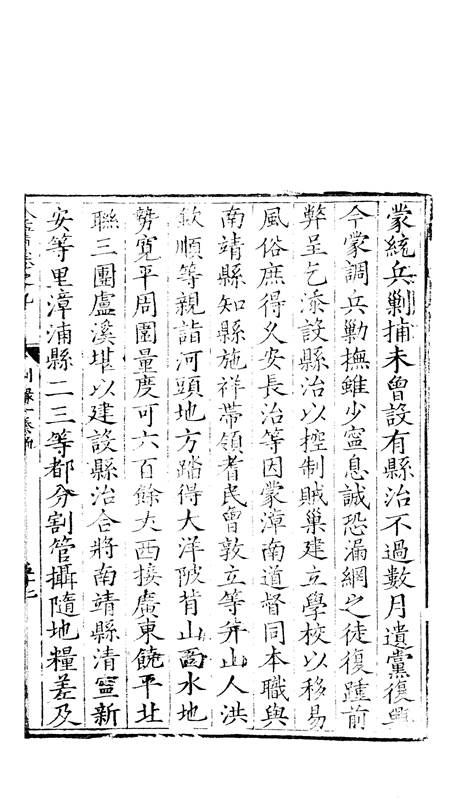 蒙統兵剿捕未曾設有縣治不過數月遺黨復興
今蒙調兵勦撫雖少寧息誠恐漏網之徒復踵前
弊呈乞添設縣治以控制賊巢建立學校以移易
風俗庶得久安長治等因蒙漳南道督同本職與
南靖縣知縣施祥帶領耆民曾敦立等并山人洪
欽順等親詣河頭地方踏得大洋陂背山面水地
勢寬平周圍量度可六百餘丈西接廣東饒平北
聯三團盧溪堪以建設縣治合將南靖縣清寧新
安等里漳浦縣二三等都分割管攝隨地糧差及